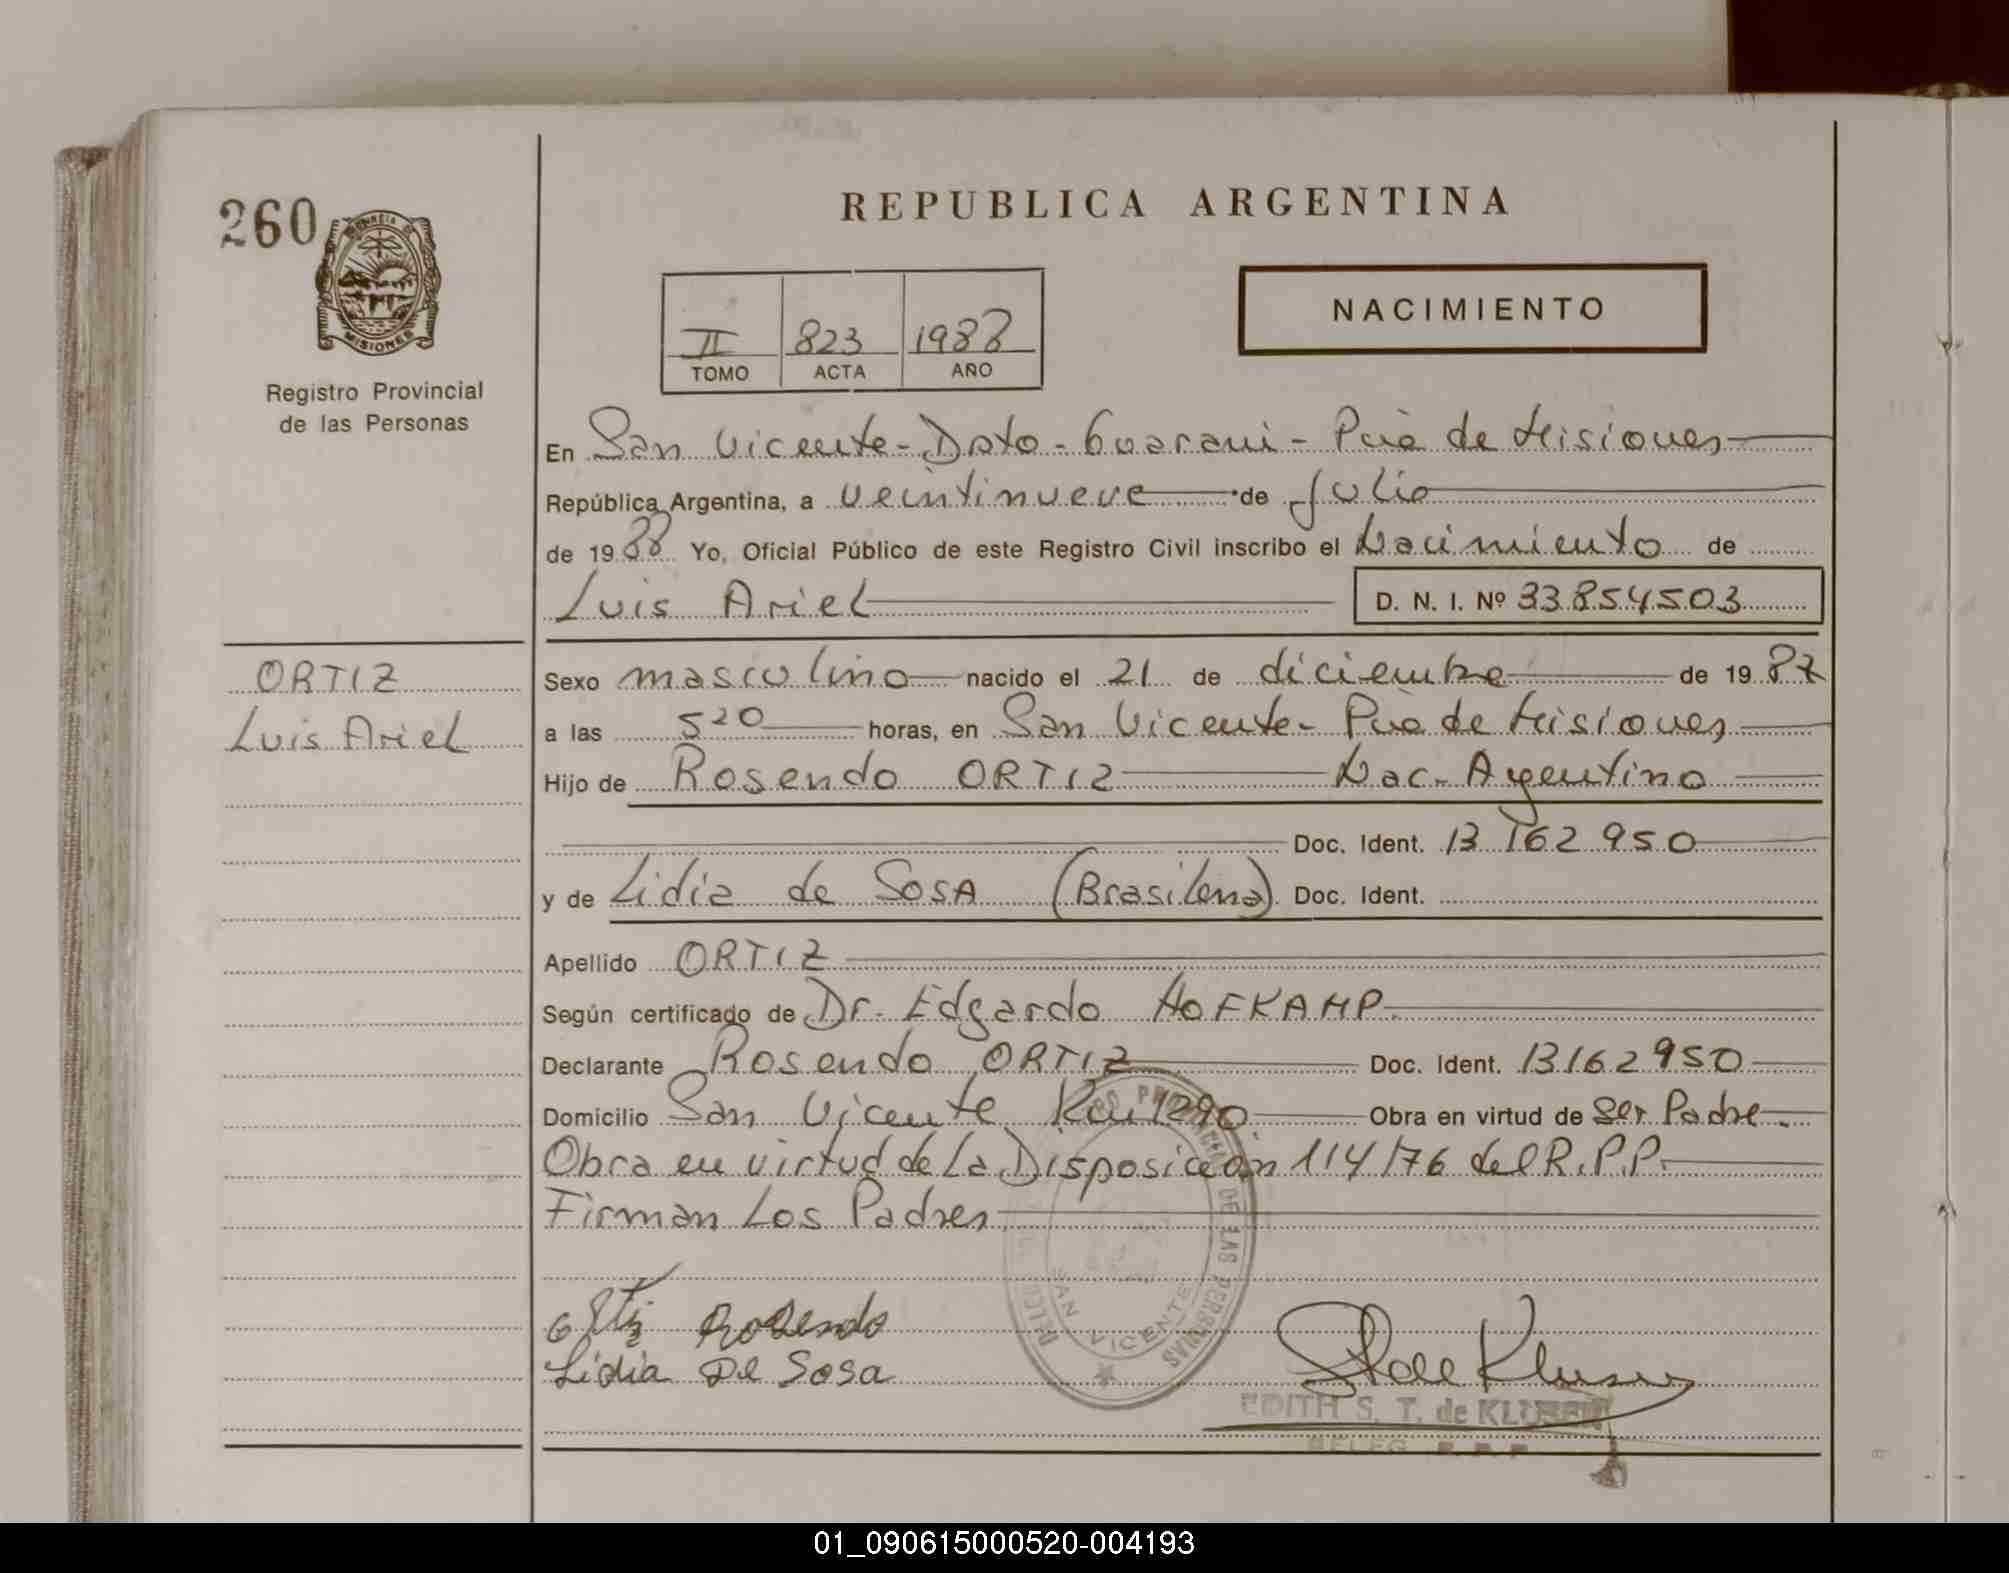 260
REPUBLICA ARGENTINA
PROVINCIA DE
MISIONES
Registro Provincial
de las Personas
II 823 1988
TOMO ACTA AÑO
NACIMIENTO
En San Vicente - Dpto - Guarani - Pcia de Misiones
República Argentina, a veintinueve de Julio
de 1988 Yo, Oficial Público de este Registro Civil inscribo el Nacimiento de
Luis Ariel D. N. I. Nº 33854503
ORTIZ
Luis Ariel
Sexo masculino nacido el 21 de diciembre de 1987
a las 5 20 horas, en San Vicente - Pcia de Misiones
Hijo de Rosendo ORTIZ Nac. Argentino
Doc. Ident. 13 162 950
y de Lidia de SOSA (Brasilena) Doc. Ident.
Apellido ORTIZ
Según certificado de Dr. Edgardo HOFKAMP
Declarante Rosendo ORTIZ Doc. Ident. 13162950
Domicilio San Vicente Km 1290 Obra en virtud de ser Padre.
Obra en virtud de La Disposición 114/76 del R.P.P.
Firman Los Padres
Ortiz Rosendo
Lidia De Sosa
DE LAS PERSONAS
SAN VICENTE
EDITH S. T. de KLUSER
DELEG. R. P. P.
01_090615000520-004193